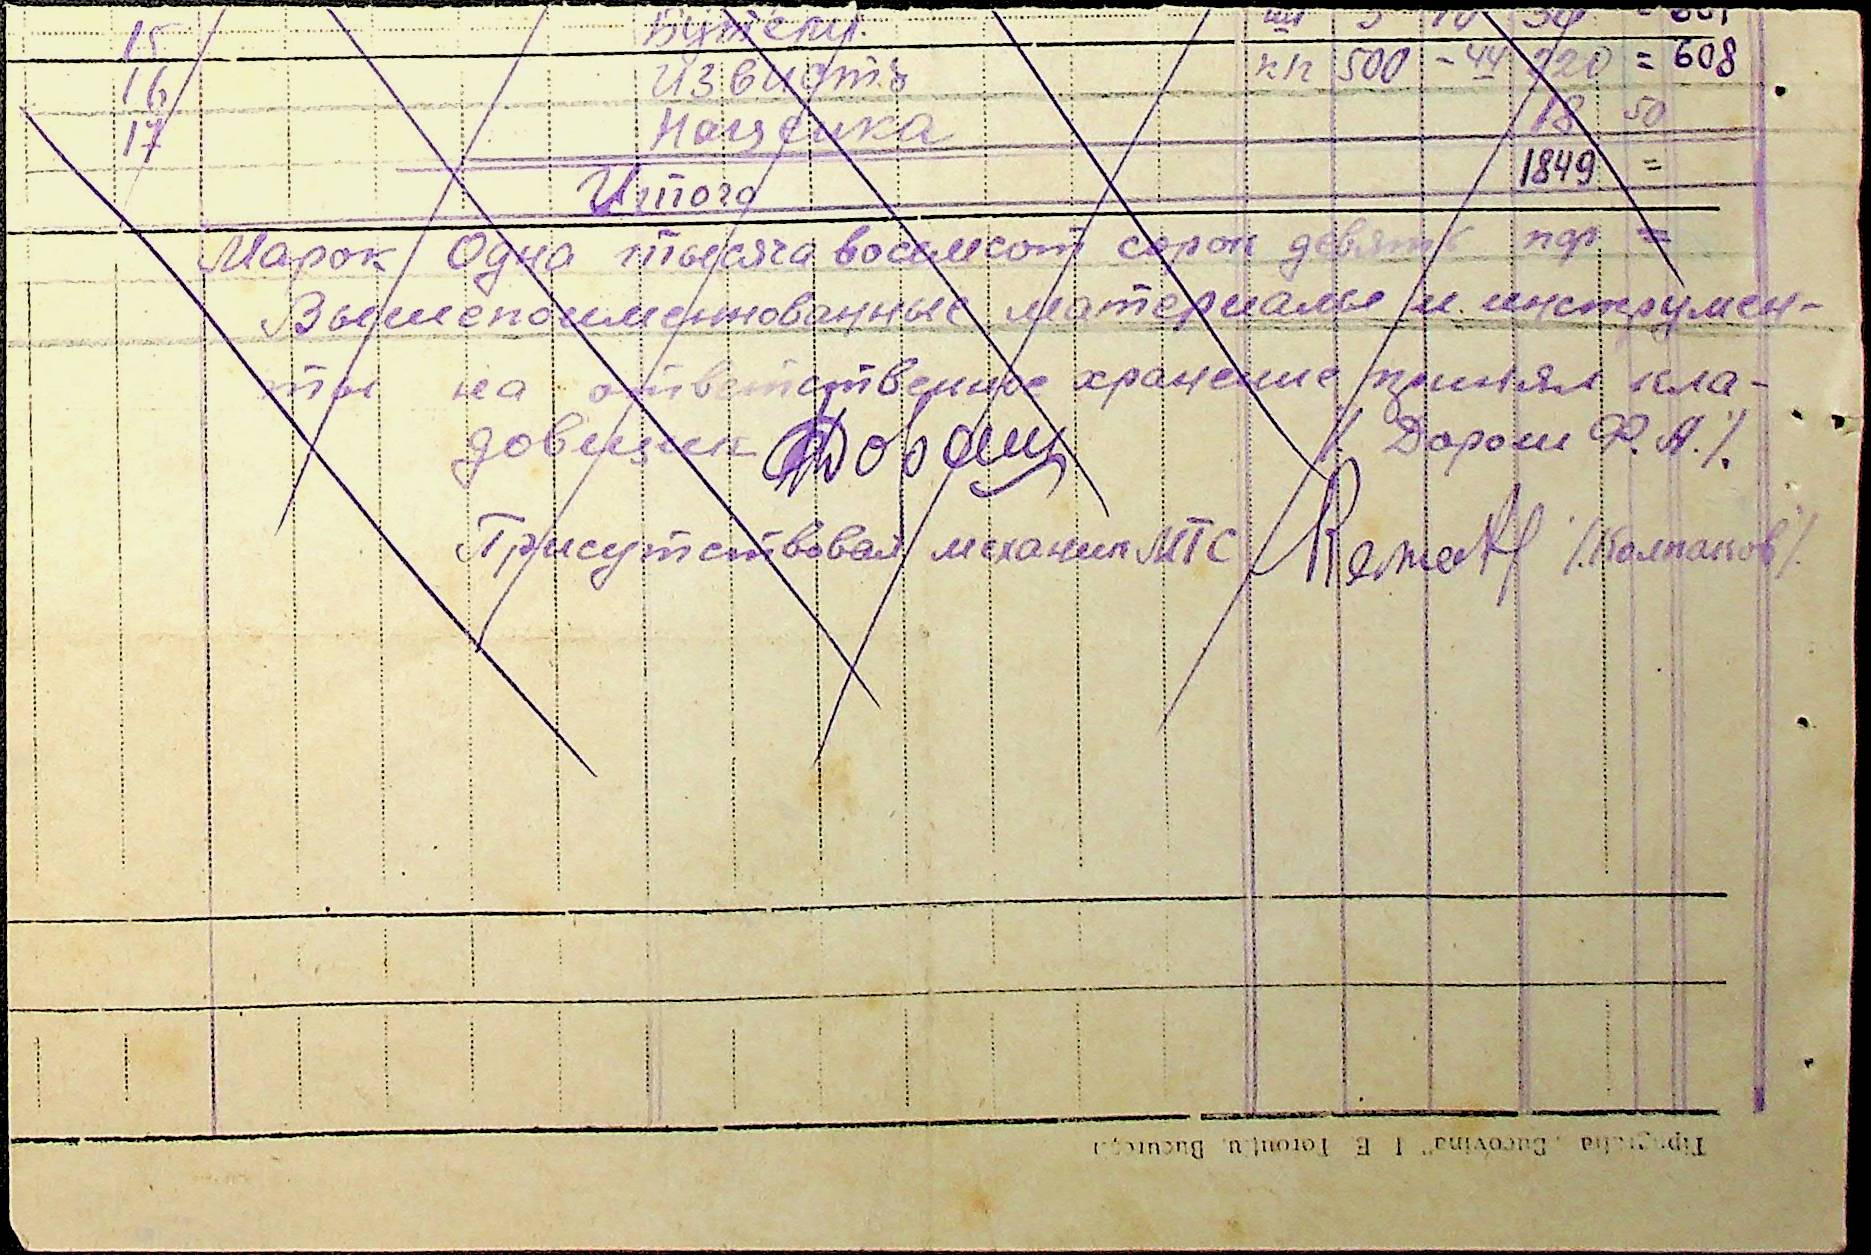 15 Бутели. шт 3 10 30
16 Известь кг 500 -44 220 = 608
17 Наценка 18 50
Итого 1849 =
Марок Одна тысяча восемсот сорок девять пф =
Вышепоименнованные материалы и инструмен-
ты на ответственное хранение принял кла-
довщик Дорош /. Дорош Ф. А./.
Присутствовал механик МТС /.Колпаков/.
Tipografia „Bucovina" I. E. Torouțiu, București